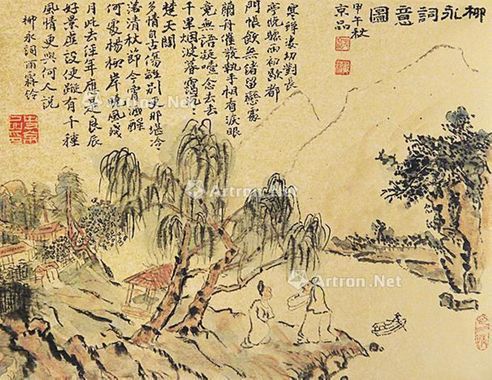 柳永詞意圖
甲午杜
京品
寒蟬凄切對長
亭晚驟雨初歇都
門帳飲無緒留戀處
蘭舟催發執手相看淚眼
竟無語凝噎念去去
千里烟波暮靄沉沉
楚天闊
多情自古傷離別更那堪冷
落清秋節今宵酒醒
何處楊柳岸曉風殘
月此去經年應是良辰
好景虛設便縱有千種
風情更與何人說
柳永詞雨霖鈴
Artron.Net
Artron.Net
Artron.Net